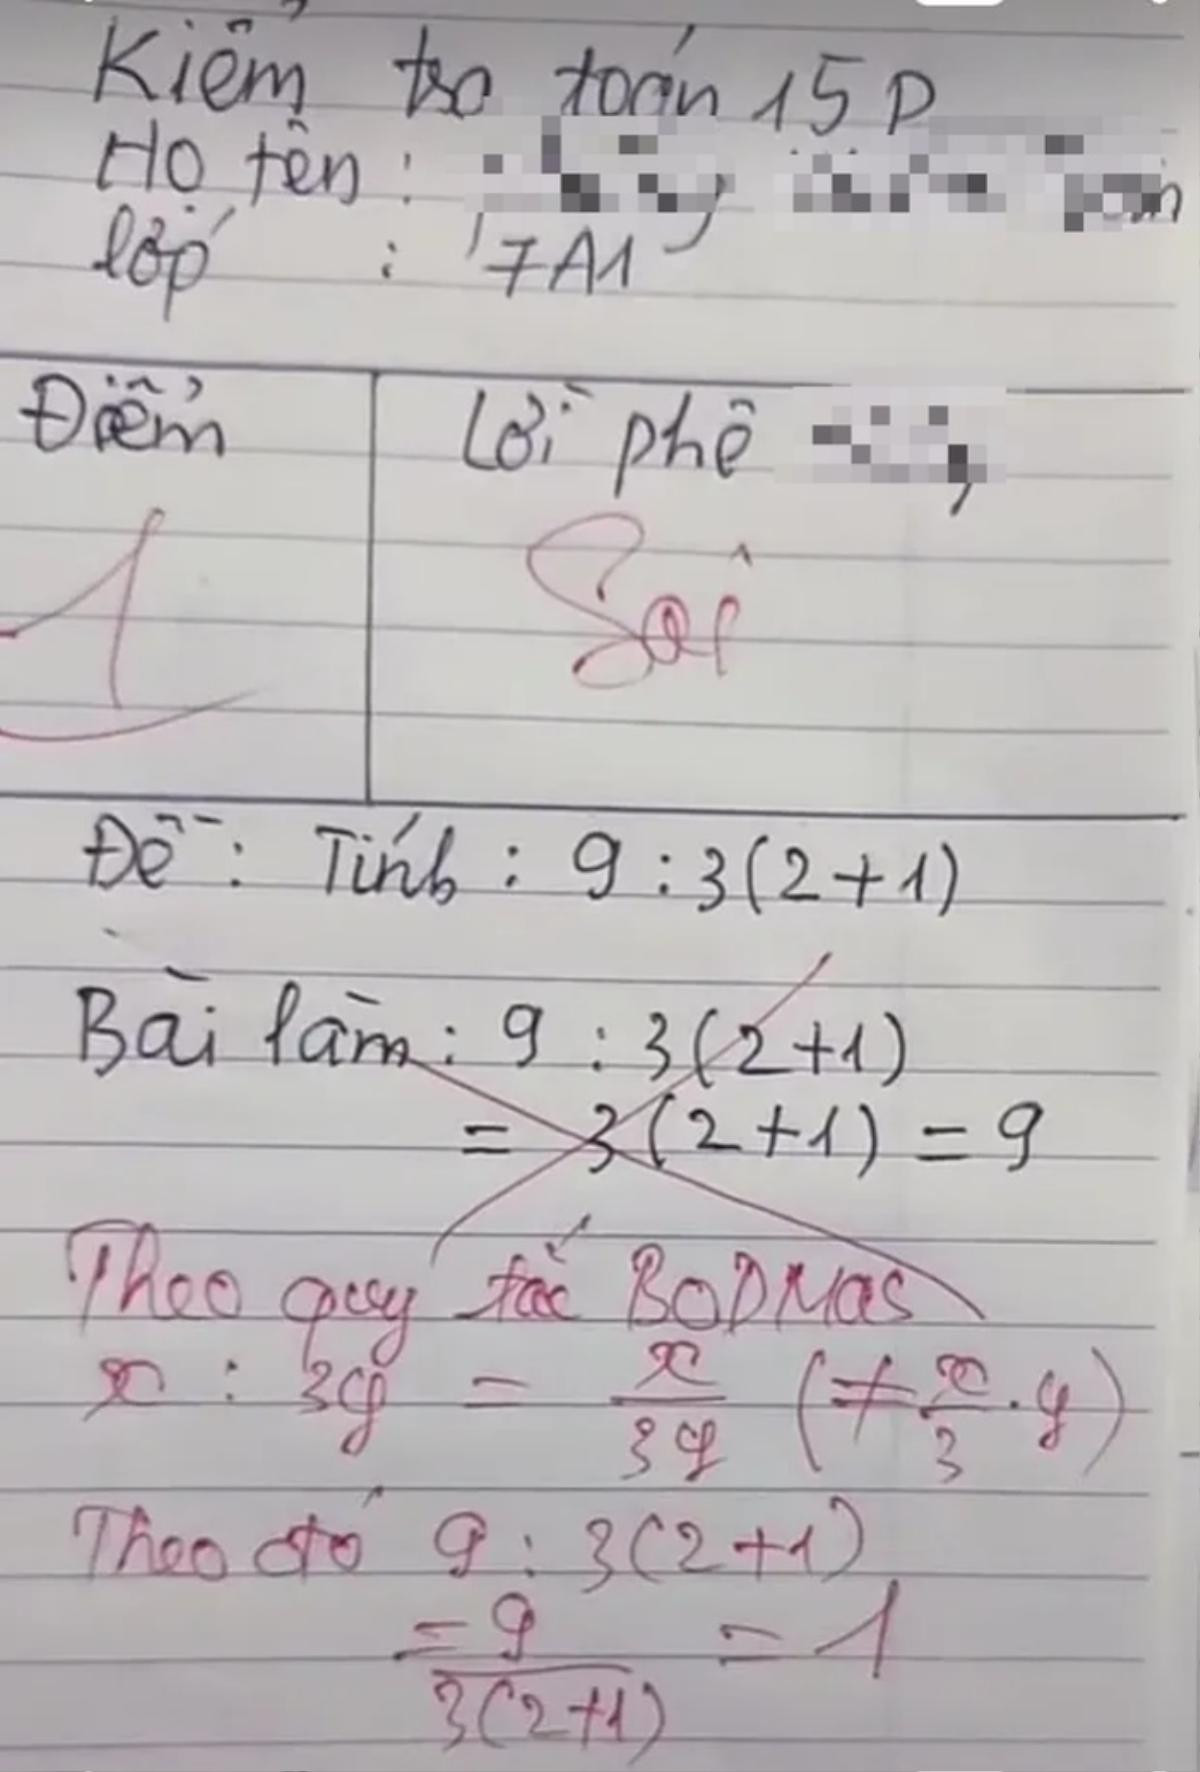 Kiểm tra toán 15p
Họ tên:
lớp : 7A1
Điểm
Lời phê
1
Sai
Đề: Tính: 9 : 3(2+1)
Bài làm: 9 : 3(2+1)
= 3(2+1) = 9
Theo quy tắc BODMAS
x : 3y = x/3y (≠ x/3 . y)
Theo đó 9 : 3(2+1)
= 9/3(2+1) = 1